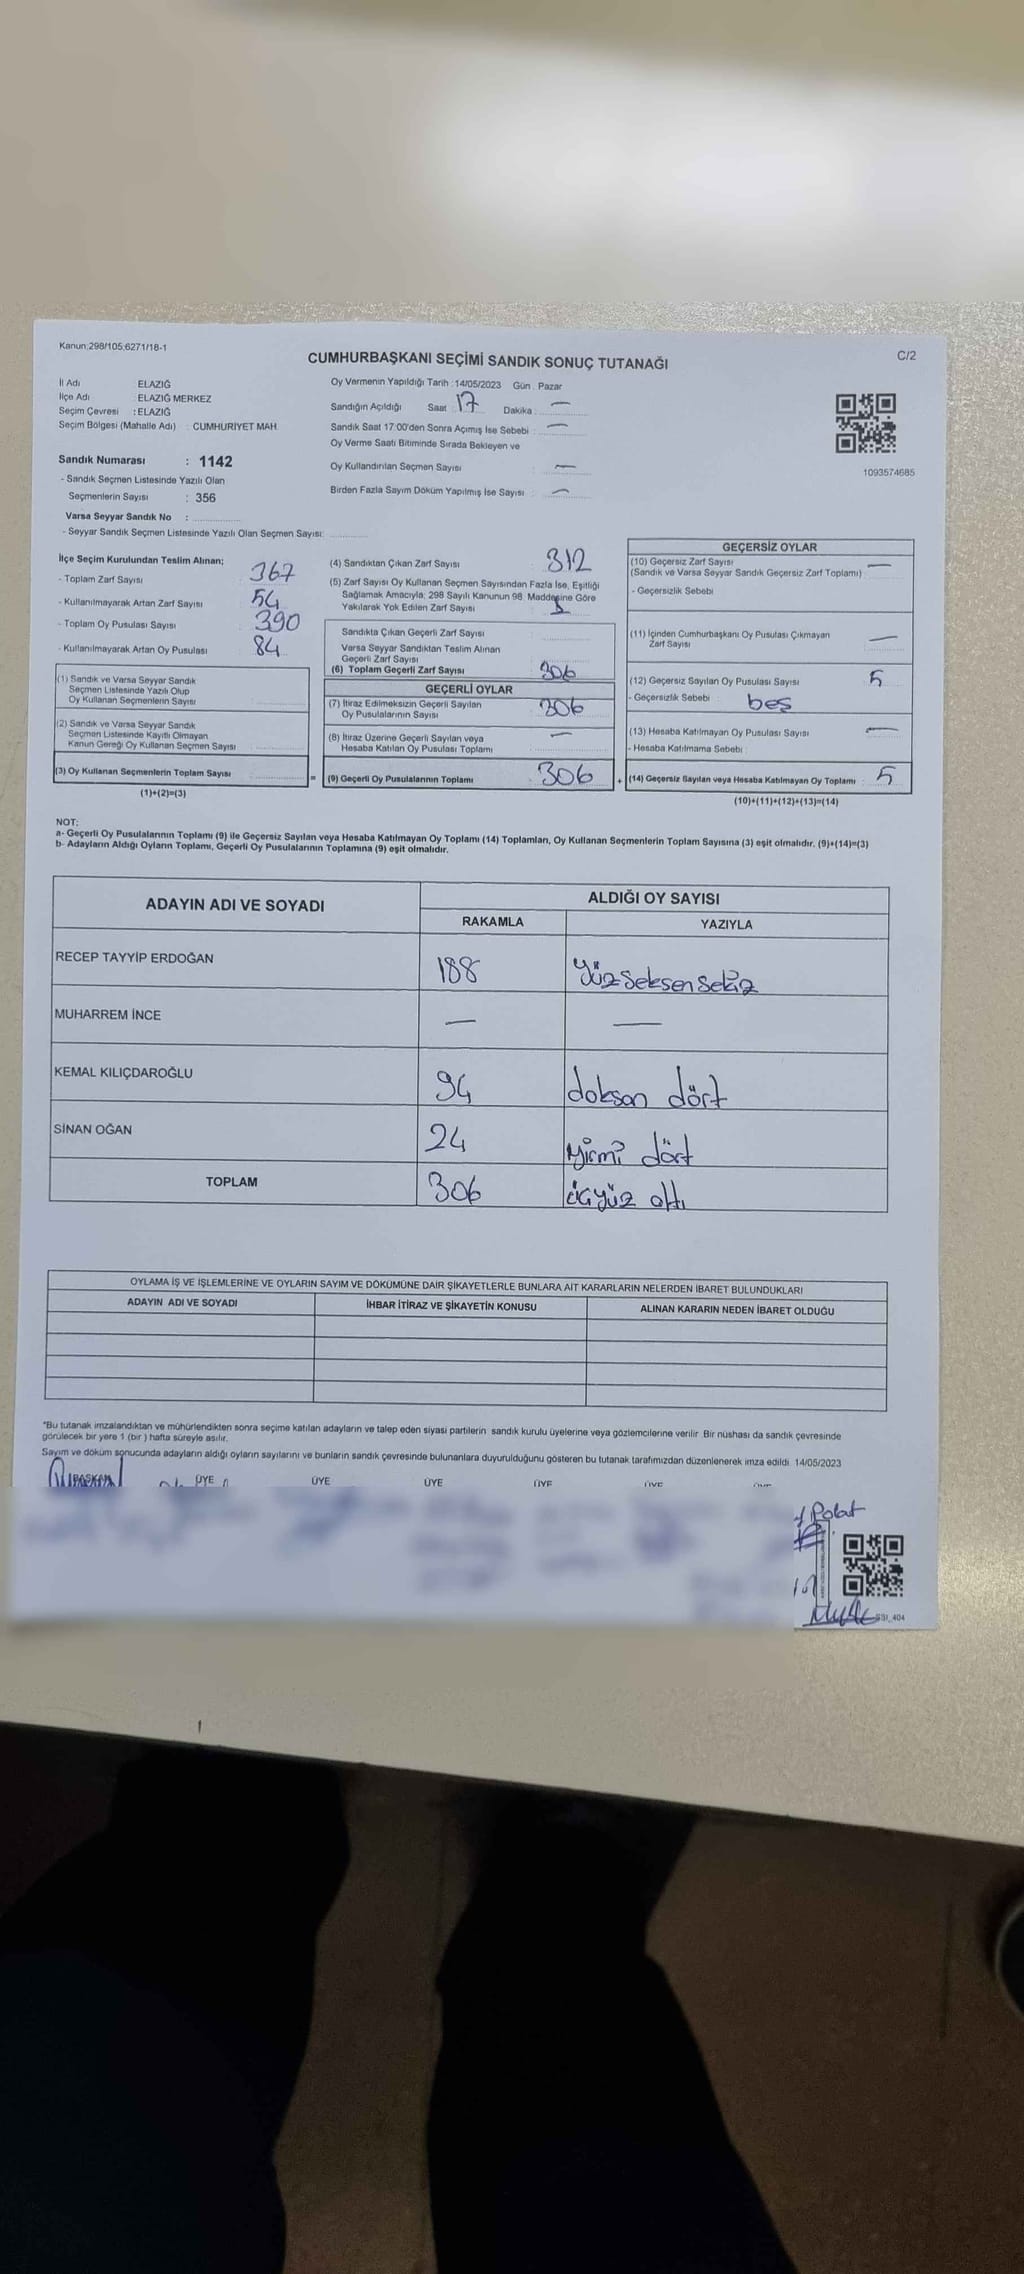 Kanun;298/105;6271/18-1
C/2
CUMHURBAŞKANI SEÇİMİ SANDIK SONUÇ TUTANAĞI
İl Adı ELAZIĞ
İlçe Adı : ELAZIĞ MERKEZ
Seçim Çevresi : ELAZIĞ
Seçim Bölgesi (Mahalle Adı) : CUMHURİYET MAH.
Sandık Numarası : 1142
- Sandık Seçmen Listesinde Yazılı Olan
Seçmenlerin Sayısı : 356
Varsa Seyyar Sandık No :
- Seyyar Sandık Seçmen Listesinde Yazılı Olan Seçmen Sayısı:
Oy Vermenin Yapıldığı Tarih : 14/05/2023 Gün : Pazar
Sandığın Açıldığı Saat : 17 Dakika : —
Sandık Saat 17:00'den Sonra Açımış İse Sebebi : —
Oy Verme Saati Bitiminde Sırada Bekleyen ve
Oy Kullandırılan Seçmen Sayısı : —
Birden Fazla Sayım Döküm Yapılmış İse Sayısı : —
1093574685
İlçe Seçim Kurulundan Teslim Alınan;
- Toplam Zarf Sayısı 367
- Kullanılmayarak Artan Zarf Sayısı 54
- Toplam Oy Pusulası Sayısı 390
- Kullanılmayarak Artan Oy Pusulası 84
(1) Sandık ve Varsa Seyyar Sandık
Seçmen Listesinde Yazılı Olup
Oy Kullanan Seçmenlerin Sayısı
(2) Sandık ve Varsa Seyyar Sandık
Seçmen Listesinde Kayıtlı Olmayan
Kanun Gereği Oy Kullanan Seçmen Sayısı
(3) Oy Kullanan Seçmenlerin Toplam Sayısı
(1)+(2)=(3)
(4) Sandıktan Çıkan Zarf Sayısı 312
(5) Zarf Sayısı Oy Kullanan Seçmen Sayısından Fazla İse, Eşitliği
Sağlamak Amacıyla; 298 Sayılı Kanunun 98. Maddesine Göre
Yakılarak Yok Edilen Zarf Sayısı
Sandıkta Çıkan Geçerli Zarf Sayısı
Varsa Seyyar Sandıktan Teslim Alınan
Geçerli Zarf Sayısı
(6) Toplam Geçerli Zarf Sayısı 306
GEÇERLİ OYLAR
(7) İtiraz Edilmeksizin Geçerli Sayılan
Oy Pusulalarının Sayısı 306
(8) İtiraz Üzerine Geçerli Sayılan veya
Hesaba Katılan Oy Pusulası Toplamı —
= (9) Geçerli Oy Pusulalarının Toplamı 306
GEÇERSİZ OYLAR
(10) Geçersiz Zarf Sayısı —
(Sandık ve Varsa Seyyar Sandık Geçersiz Zarf Toplamı)
- Geçersizlik Sebebi
(11) İçinden Cumhurbaşkanı Oy Pusulası Çıkmayan
Zarf Sayısı —
(12) Geçersiz Sayılan Oy Pusulası Sayısı 5
- Geçersizlik Sebebi : beş
(13) Hesaba Katılmayan Oy Pusulası Sayısı —
- Hesaba Katılmama Sebebi
+ (14) Geçersiz Sayılan veya Hesaba Katılmayan Oy Toplamı : 5
(10)+(11)+(12)+(13)=(14)
NOT:
a- Geçerli Oy Pusulalarının Toplamı (9) ile Geçersiz Sayılan veya Hesaba Katılmayan Oy Toplamı (14) Toplamları, Oy Kullanan Seçmenlerin Toplam Sayısına (3) eşit olmalıdır. (9)+(14)=(3)
b- Adayların Aldığı Oyların Toplamı, Geçerli Oy Pusulalarının Toplamına (9) eşit olmalıdır.
ADAYIN ADI VE SOYADI
ALDIĞI OY SAYISI
RAKAMLA YAZIYLA
RECEP TAYYİP ERDOĞAN 188 Yüz Seksen Sekiz
MUHARREM İNCE — —
KEMAL KILIÇDAROĞLU 94 doksan dört
SİNAN OĞAN 24 yirmi dört
TOPLAM 306 üçyüz altı
OYLAMA İŞ VE İŞLEMLERİNE VE OYLARIN SAYIM VE DÖKÜMÜNE DAİR ŞİKAYETLERLE BUNLARA AİT KARARLARIN NELERDEN İBARET BULUNDUKLARI
ADAYIN ADI VE SOYADI İHBAR İTİRAZ VE ŞİKAYETİN KONUSU ALINAN KARARIN NEDEN İBARET OLDUĞU
*Bu tutanak imzalandıktan ve mühürlendikten sonra seçime katılan adayların ve talep eden siyasi partilerin sandık kurulu üyelerine veya gözlemcilerine verilir. Bir nüshası da sandık çevresinde
görülecek bir yere 1 (bir ) hafta süreyle asılır.
Sayım ve döküm sonucunda adayların aldığı oyların sayılarını ve bunların sandık çevresinde bulunanlara duyurulduğunu gösteren bu tutanak tarafımızdan düzenlenerek imza edildi. 14/05/2023
BAŞKAN ÜYE ÜYE ÜYE ÜYE ÜYE
Polat